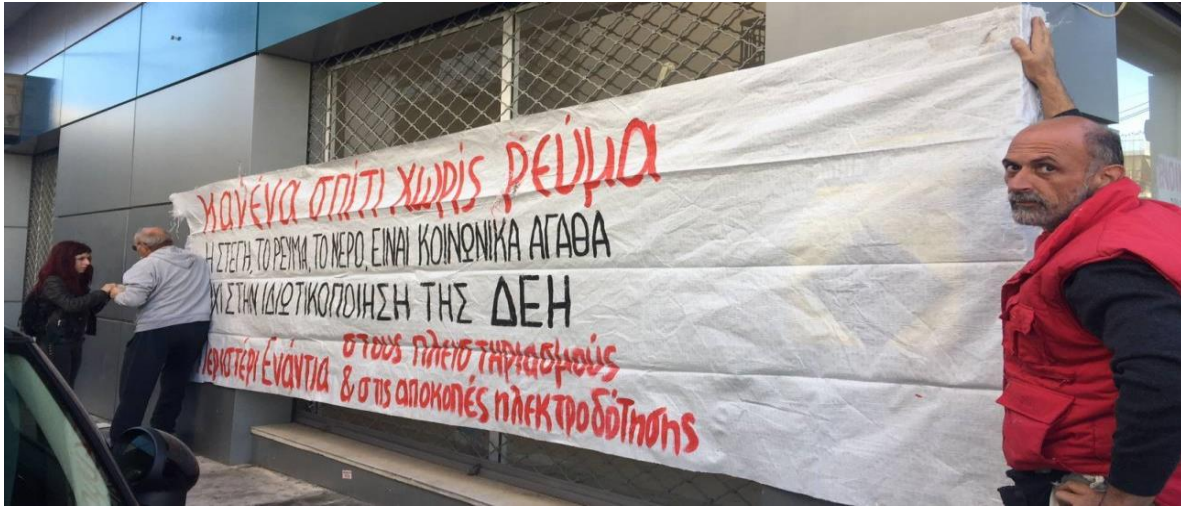 κανένα σπίτι χωρίς ρεύμα
Η ΣΤΕΓΗ, ΤΟ ΡΕΥΜΑ, ΤΟ ΝΕΡΟ, ΕΙΝΑΙ ΚΟΙΝΩΝΙΚΑ ΑΓΑΘΑ
ΣΤΗΝ ΙΔΙΩΤΙΚΟΠΟΙΗΣΗ ΤΗΣ ΔΕΗ
Περιστέρι Ενάντια στους πλειστηριασμούς
& στις αποκοπές ηλεκτροδότησης